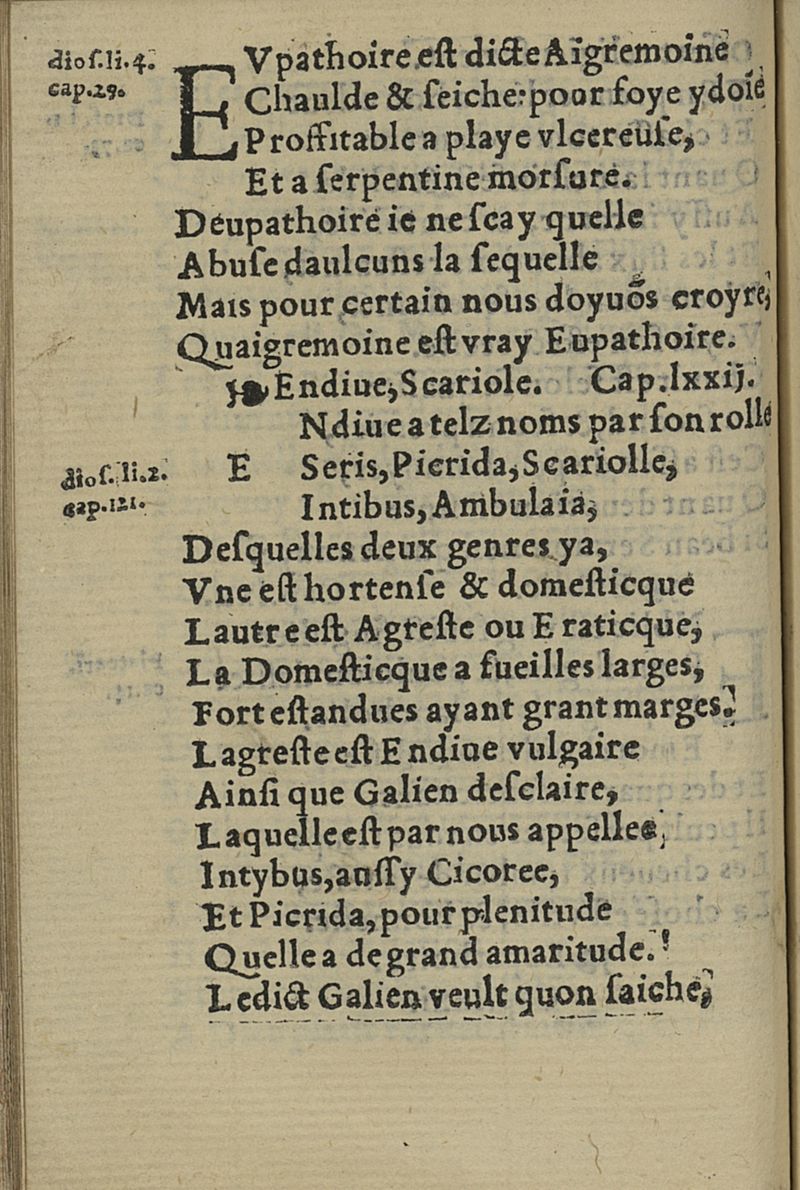 dioſ.li.4.
cap.29.
EVpathoire eſt dicte Aigremoine
Chaulde & ſeiche: pour foye ydoié
Proffitable a playe vlcereuſe,
Et a ſerpentine morſure.
Deupathoire ie neſcay quelle
Abuſe daulcuns la ſequelle
Mais pour certain nous doyuōs croyre,
Quaigremoine eſt vray Eupathoire.
❧ Endiue, Scariole. Cap.lxxij.
dioſ.li.2.
cap.121.
ENdiue a telz noms par ſon rolle
Seris, Picrida, Scariolle,
Intibus, Ambulaia,
Deſquelles deux genres ya,
Vne eſt hortenſe & domeſticque
Lautre eſt Agreſte ou Eraticque,
La Domeſticque a fueilles larges,
Fort eſtandues ayant grant marges.
Lagreſte eſt Endiue vulgaire
Ainſi que Galien deſclaire,
Laquelle eſt par nous appellee,
Intybus, auſſy Cicoree,
Et Picrida, pour plenitude
Quelle a de grand amaritude.
Ledict Galien veult quon ſaiche,